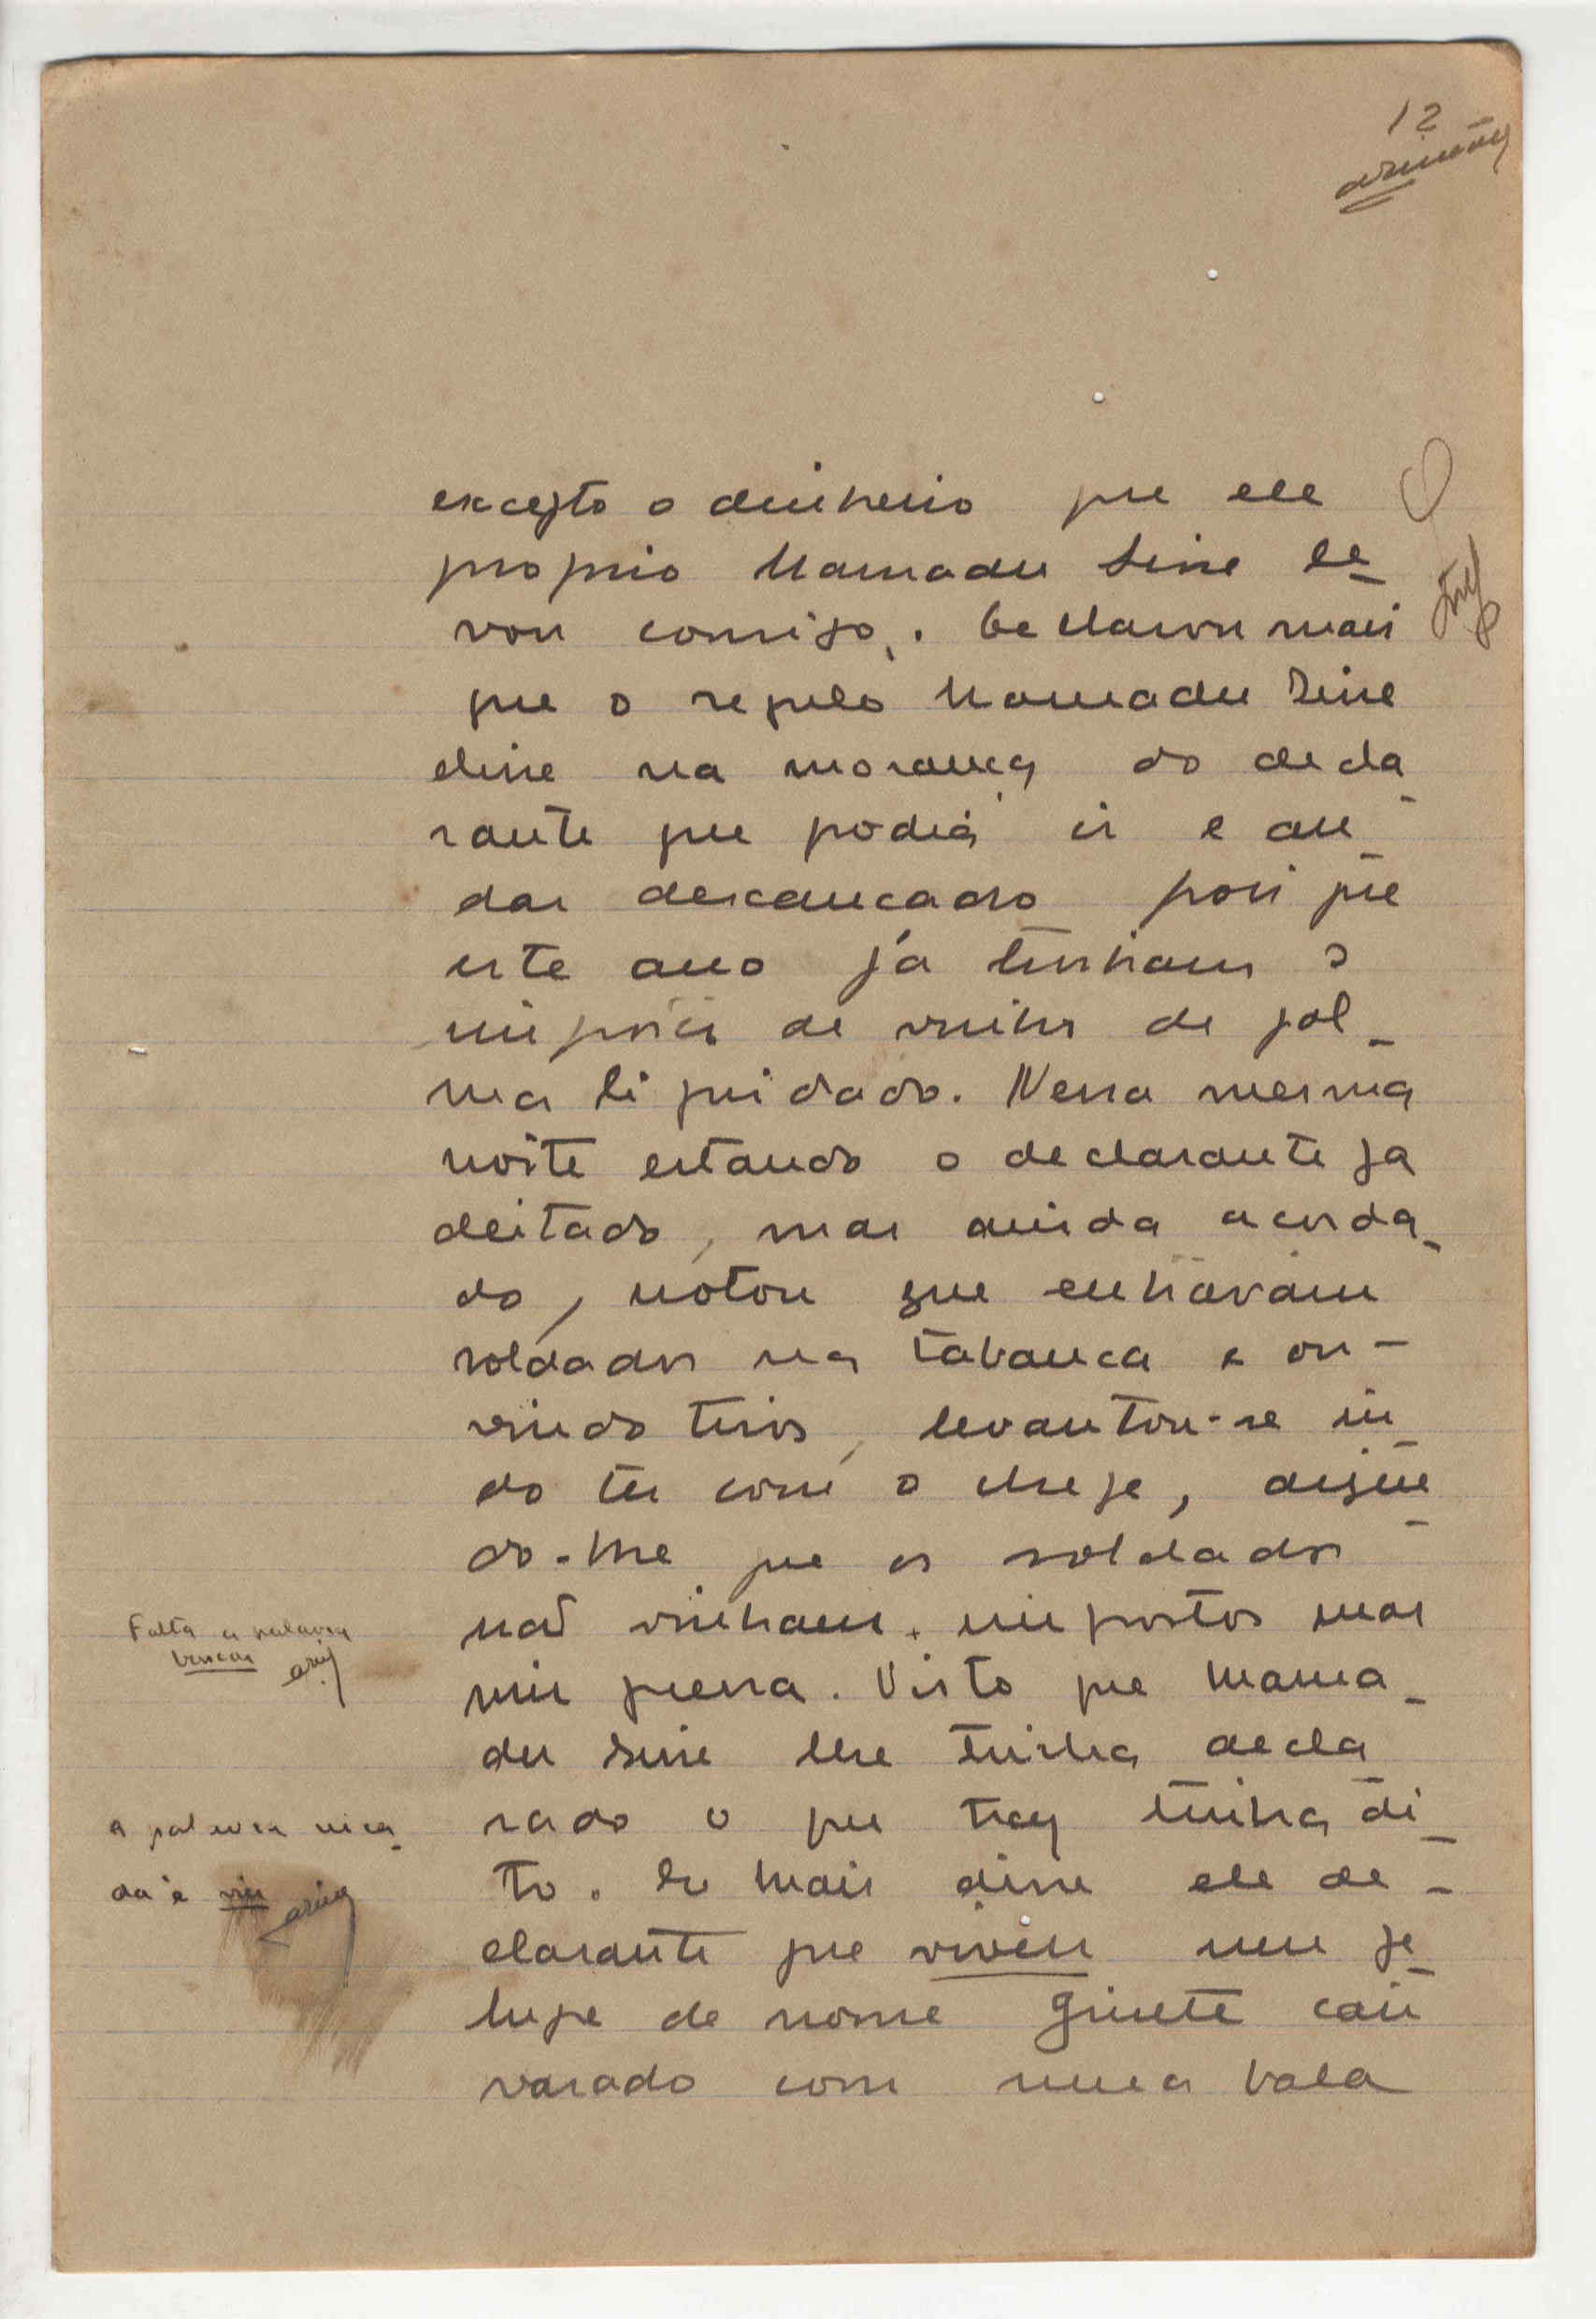 12
excepto o dinheiro que ele
proprio Mamadu Sine le-
vou comsigo. Declarou mais
que o regulo Mamadu Sine
disse na morança do decla-
rante que podia ir e an-
dar descançado pois que
este ano já tinham o
imposto de vinho de pal-
ma liquidado. Nessa mesma
noite estando o declarante ja
deitado, mas ainda acorda-
do, notou que entravam
soldados na tabanca e ou-
vindo tiros, levantou-se in-
do ter com o chefe, dizen-
do-lhe que os soldados
não vinham impostos mas
sim guerra. Visto que Mama-
du Sine lhe tinha decla
rado o que traz tinha di-
to. E mais disse ele de-
clarante que viveu um fe-
lupe de nome Ginete cair
varado com uma bala
Falta a palavra
buscar
a palavra risca-
da é viu